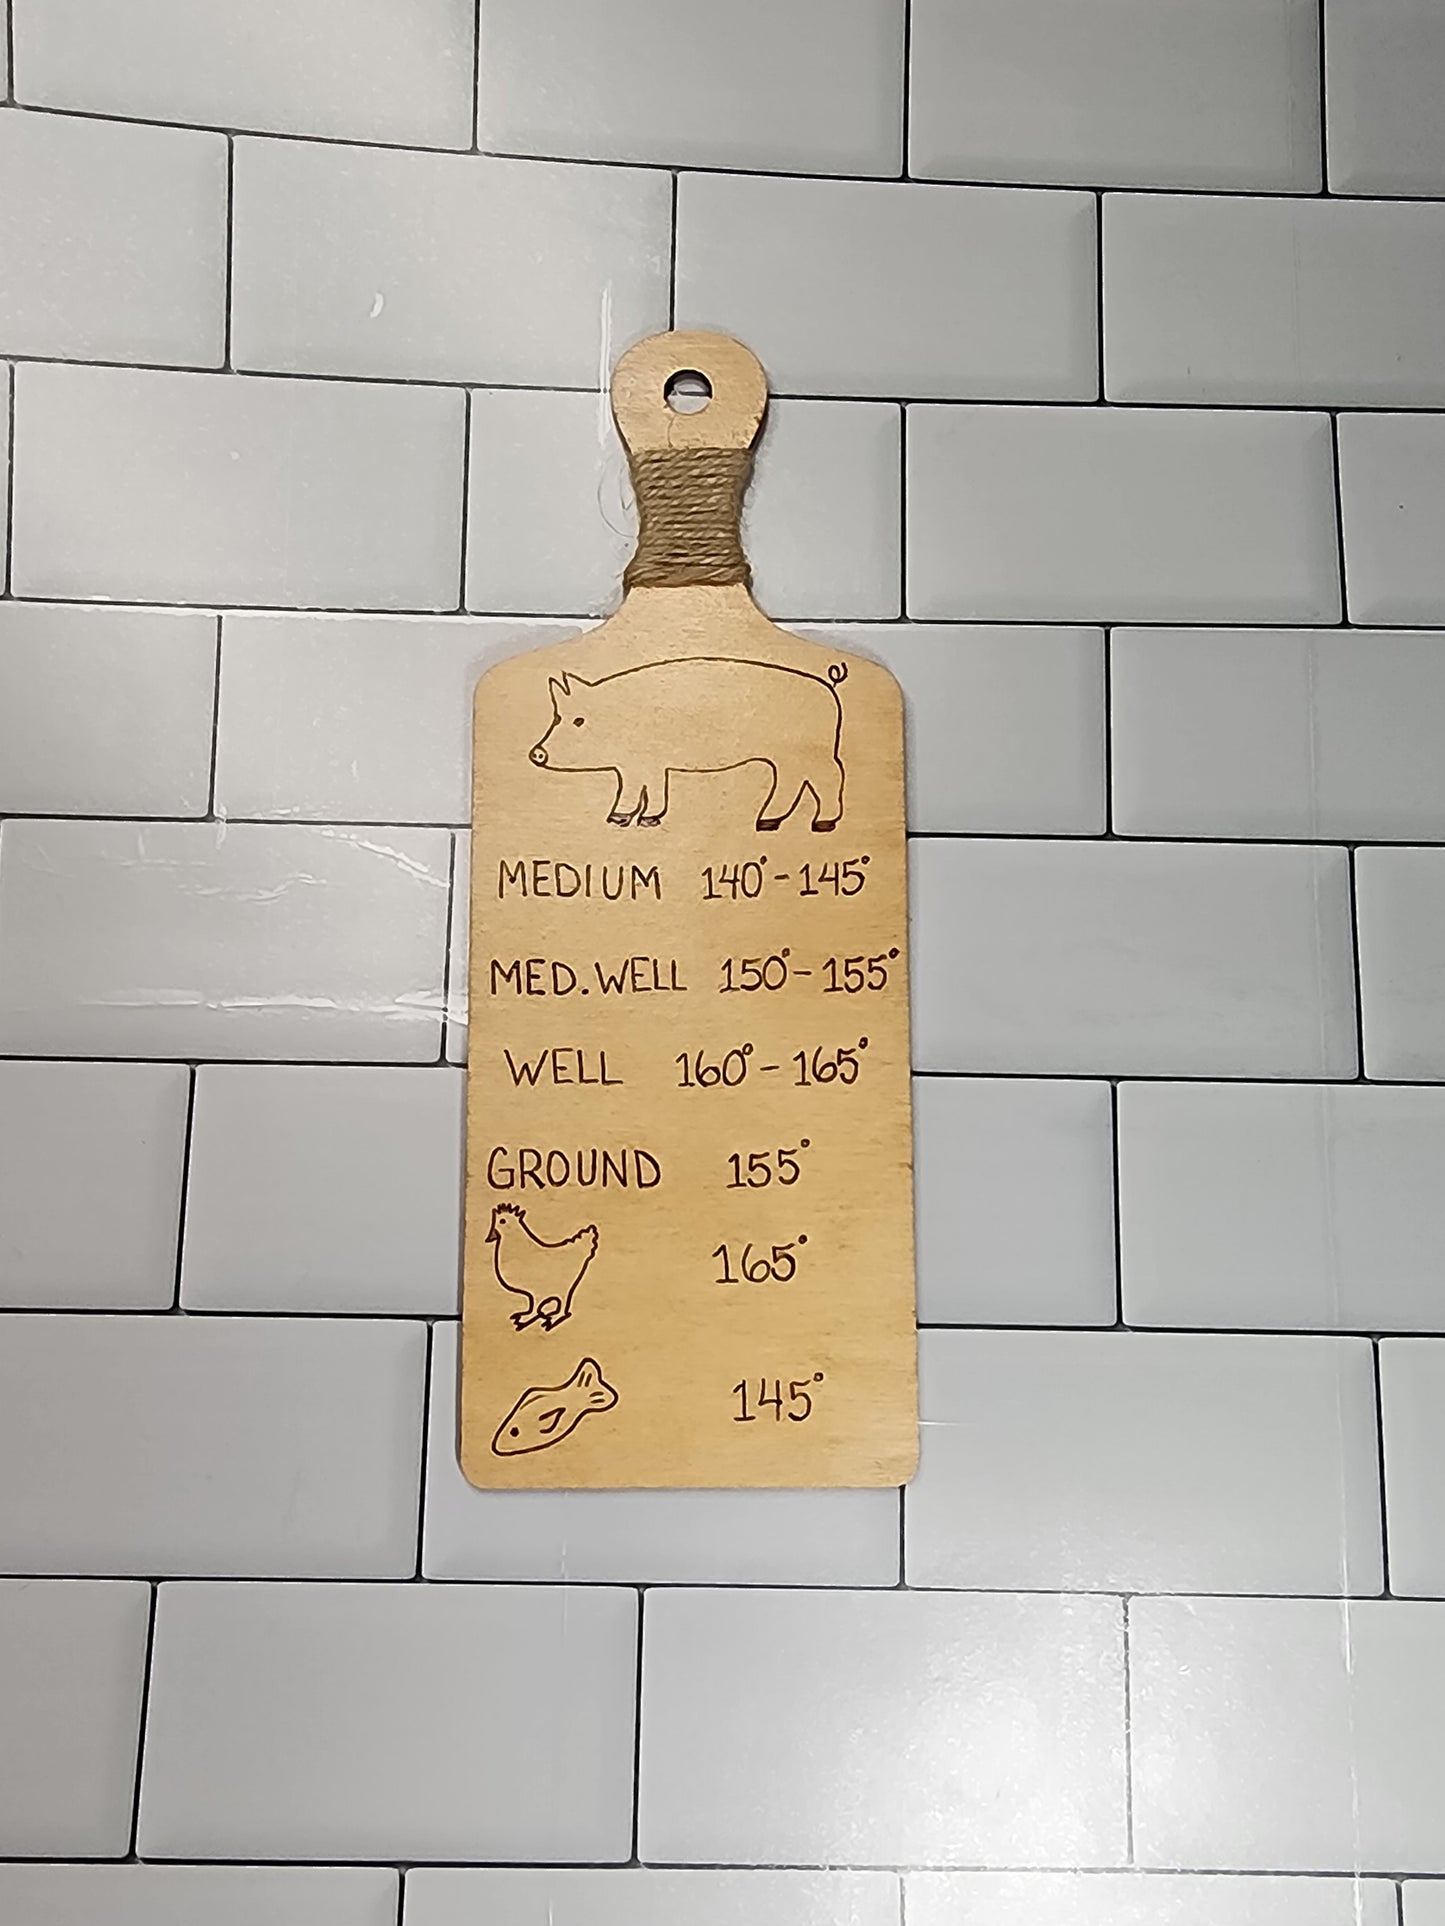 MEDIUM 140°-145°
MED. WELL 150°-155°
WELL 160°-165°
GROUND 155°
165°
145°